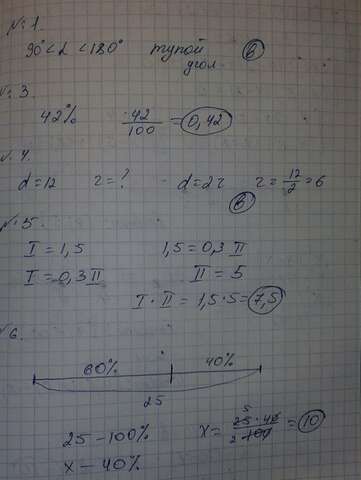 № 1.
90° < α < 180° тупой угол. в
№ 3
42% 42/100 = 0,42
№ 4.
d = 12 r = ? d = 2r r = 12/2 = 6
в
№ 5
I = 1,5 1,5 = 0,3 II
I = 0,3 II II = 5
I · II = 1,5 · 5 = 7,5
№ 6.
60% 40%
25
25 – 100%
x – 40%
x = 25 · 40 / 100 = 10